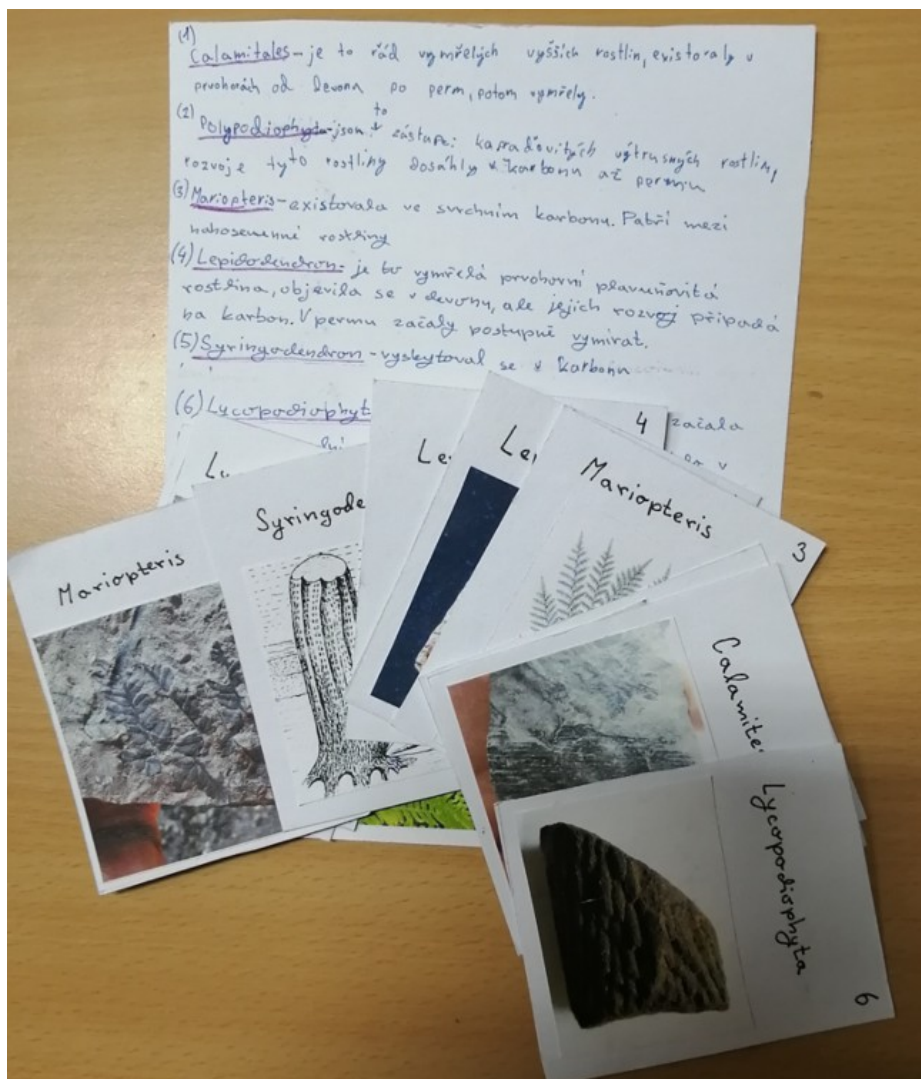 (1)
Calamitales - je to řád vymřelých vyšších rostlin, existovaly v
prvohorách od Devonu po perm, potom vymřely.
(2) Polypodiophyta - jsou to zástupci kapraďovitých výtrusných rostlin,
rozvoje tyto rostliny dosáhly v karbonu až permu
(3) Mariopteris - existovala ve svrchním karbonu. Patří mezi
nahosemenné rostliny
(4) Lepidodendron - je to vymřelá prvohorní plavuňovitá
rostlina, objevila se v devonu, ale jejich rozvoj připadá
na karbon. V permu začaly postupně vymírat.
(5) Syringodendron - vyskytoval se v karbonu
(6) Lycopodiophyt začala
v
4
Le
Le
Mariopteris
3
Syringode
Mariopteris
Calamite
Lycopodiophyta
6